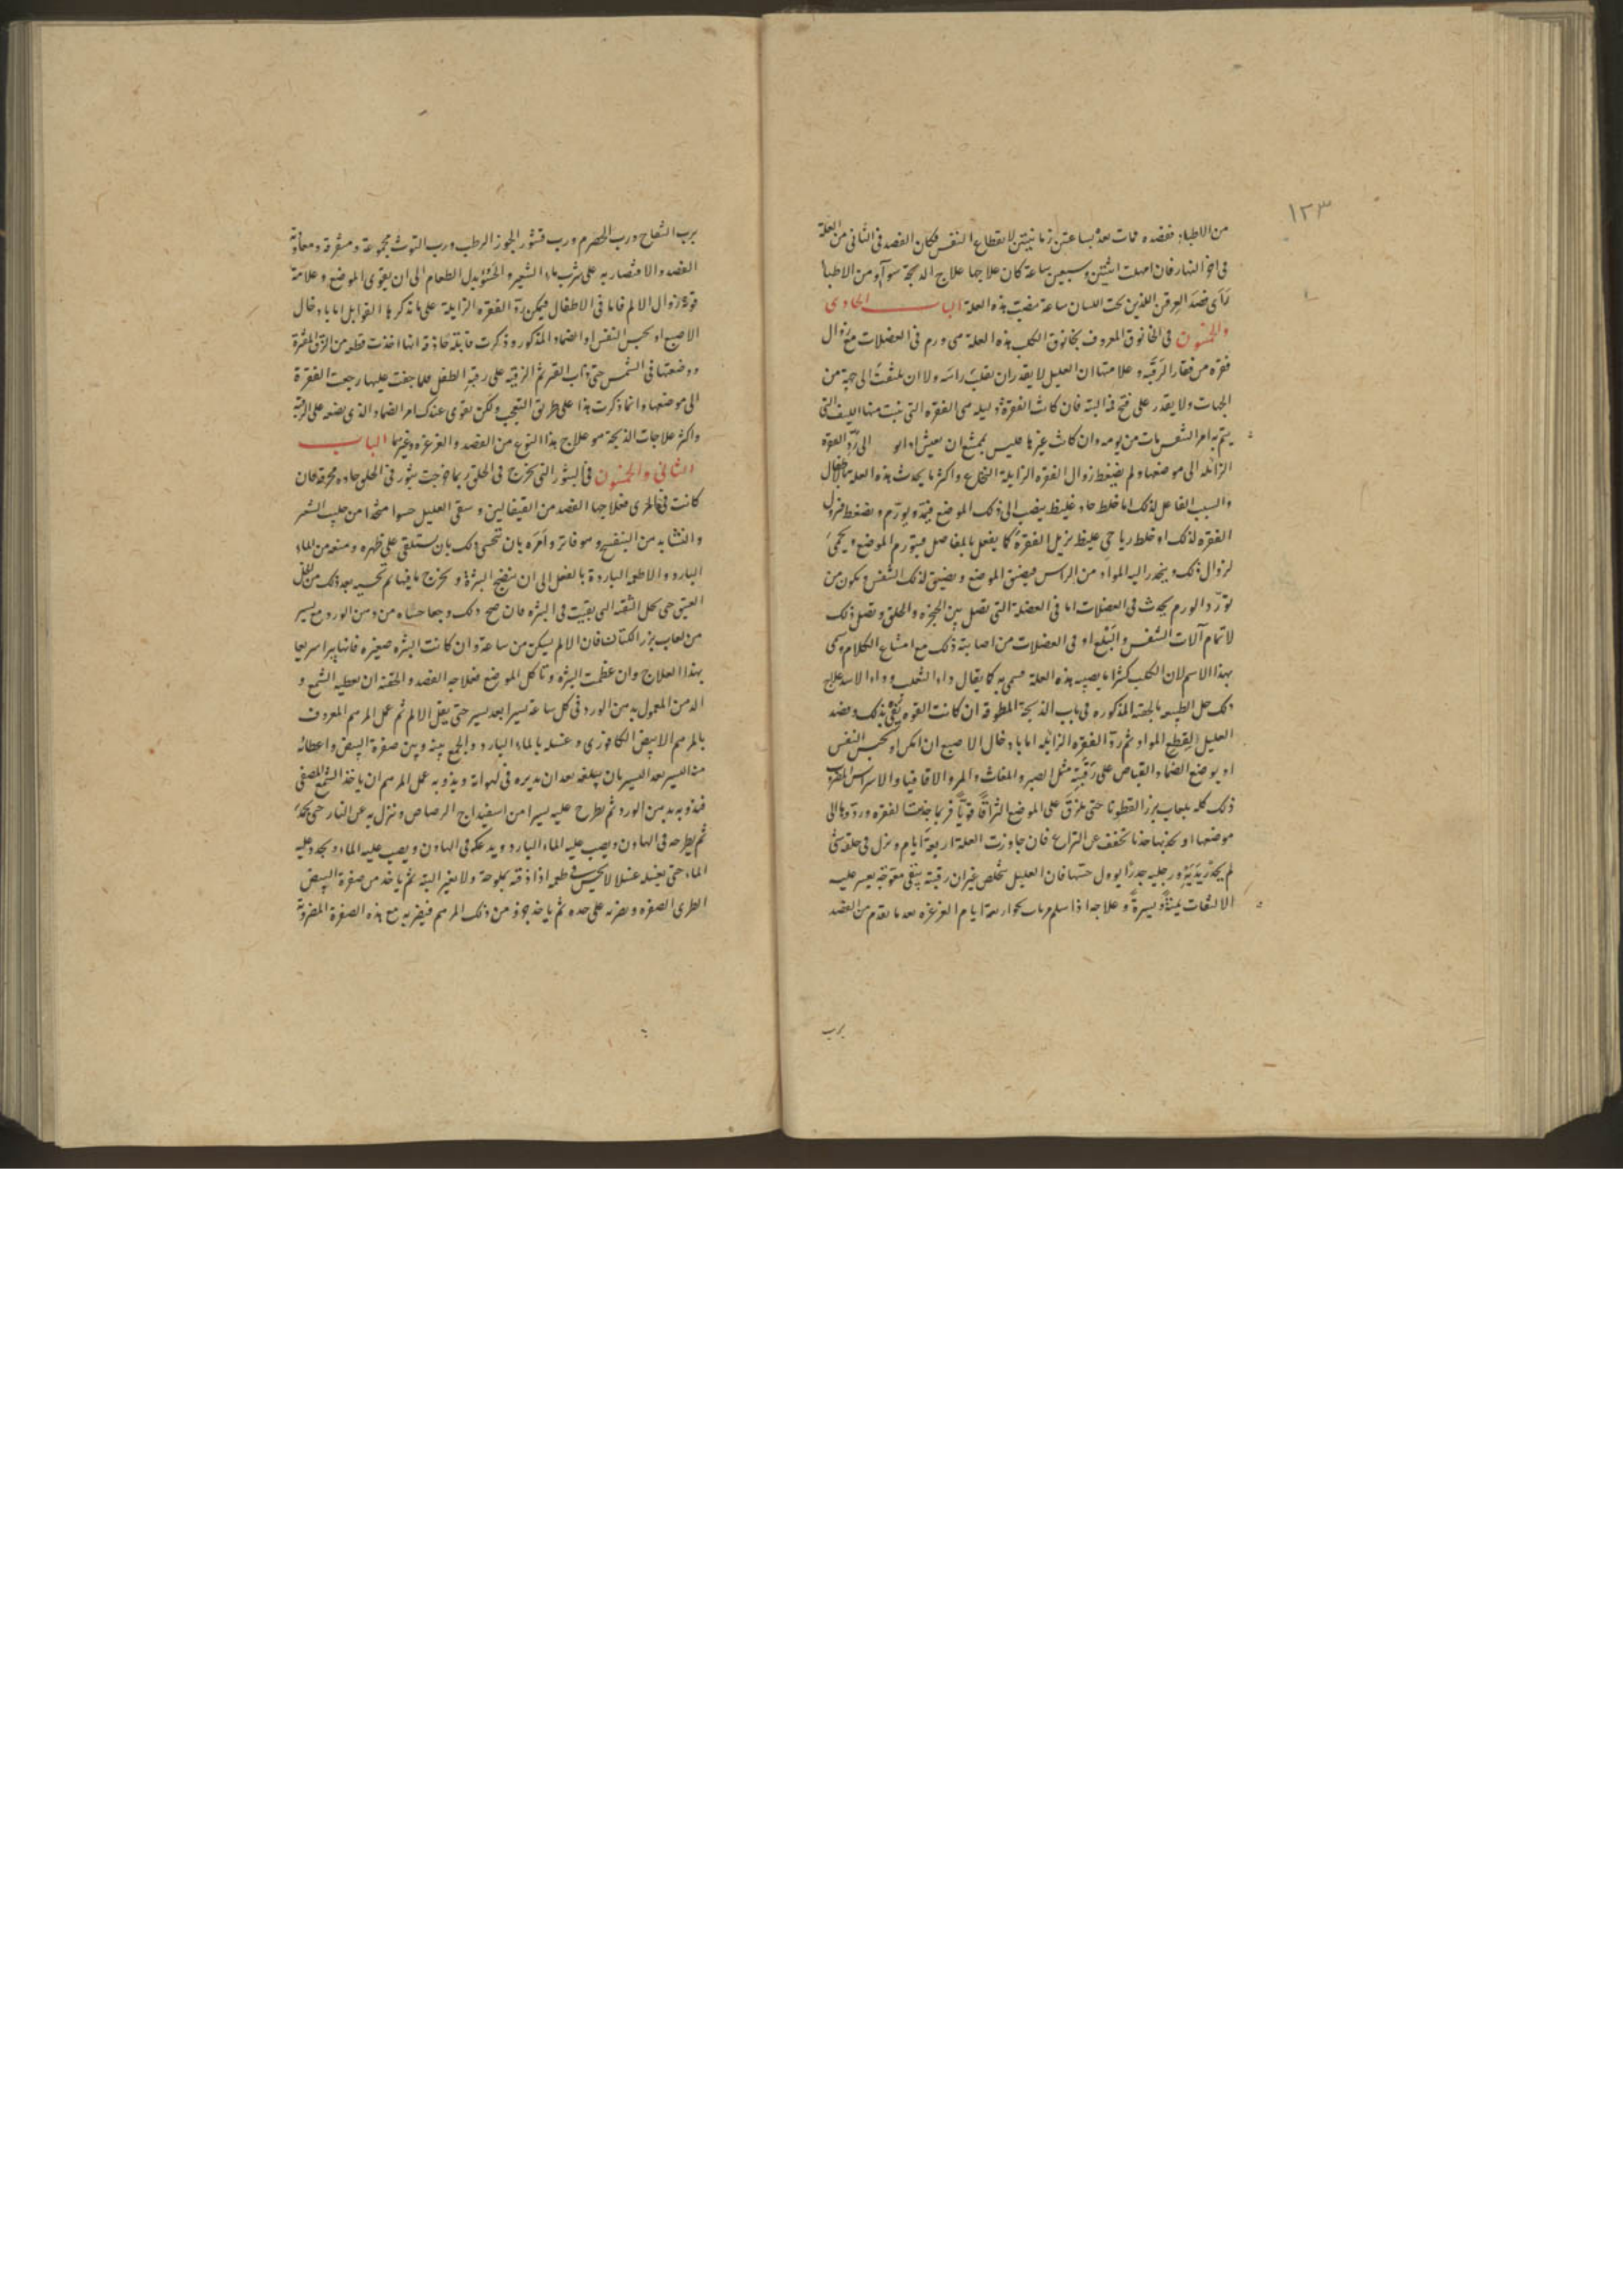 ١٢٣
من الاطباء ففصده فمات بعده بساعتين زمانيتين لانقطاع النفس فكان الفصد فى الثانى من العلة
فى اخر النهار فان امهلت اثنتين وسبعين ساعة كان علاجها علاج الذبحة سوآء ومن الاطباء
رأى فصد العرقين اللذين تحت اللسان ساعة مضت بهذه العلة الباب الحادى
والخمسون فى الخانوق المعروف بخانوق الكلب هذه العلة هى ورم فى العضلات مع زوال
فقرة من فقار الرقبة وعلامتها ان العليل لا يقدر ان يقلب راسه ولا ان يلتفت الى جهة من
الجهات ولا يقدر على فتح فمه البتة فان كانت الفقرة هى الفقره التى تنبت منها الليف التى
يتم به امر التنفس مات من يومه وان كانت غيرها فليس يمتنع ان يعيش الى رد الفقره
الزائله الى موضعها ولم يضغط زوال الفقره الزايلة النخاع واكثر ما يحدث هذه العلة بالاطفال
والسبب الفاعل لذلك اما خلط حاد غليظ ينصب الى ذلك الموضع فيمدد ويورم ويضغط فتزول
الفقره لذلك او خلط رياحى غليظ يزيل الفقرة كما يفعل بالمفاصل فيتورم الموضع ويحمى
لزوال ذلك وينحدر اليه المواد من الراس فيضيق الموضع ويضيق لذلك التنفس ويكون من
تورد الورم يحدث فى العضلات اما فى العضلة التى تصل بين الحنجرة والحلق وتصل ذلك
لاتمام آلات التنفس والبلع او فى العضلات من اصابته ذلك مع امتناع الكلام وسمى
بهذا الاسم لان الكلب كثيرا ما يصيبه هذه العلة فسمى به كما يقال داء الثعلب وداء الاسد علاج
ذلك حل الطبيعه بالحقنه المذكوره فى باب الذبحة المطوقه ان كانت القوه تفى بذلك وفصد
العليل لقطع المواد ثم رد الفقره الزائله اما بادخال الاصبع ان امكن او بحبس النفس
او بوضع الضماد القباض على رقبته مثل الصبر والمغاث والمر والاقاقيا والاسراس المضروب
ذلك كله بلعاب بزر القطونا حتى يلزق على الموضع الزاقا قويا فربما جذبت الفقره وردتها الى
موضعها او تجذبها جذبا تخفف عن النخاع فان جاوزت العلة اربعة ايام ونزل فى حلقه شئ
لم يحذر يديه ورجليه جدرا يؤول حسها فان العليل يخلص غير ان رقبته يبقى معوجة يعسر عليه
الالتفات يمنة ويسرة وعلاجه اذا سلم اربعة ايام الغرغره بعد ما تقدم من الفصد
برب
برب التفاح ورب الحصرم ورب قشور الجوز الرطب ورب التوث مجموعة ومتفرقة ومعاودة
الفصد والاقتصار به على شرب ماء الشعير والحسو بدل الطعام الى ان يقوى الموضع وعلامة
قوته زوال الالم فاما فى الاطفال فيمكن رد الفقره الزايلة على ما تذكرها القوابل اما بادخال
الاصبع او بحبس النفس او الضماد المذكور وذكرت قابلة حاذقه انها اخذت قطعه من الزق المقيرة
ووضعتها فى الشمس حتى ذاب القير ثم الزقته على رقبة الطفل فلما جفت عليها رجعت الفقرة
الى موضعها وانما ذكرت هذا على طريق التعجب ولكن يقوى عندك امر الضماد الذى يضعه على الرقبة
واكثر علاجات الذبحة هو علاج هذا النوع من الفصد والغرغره وغيرها الباب
الثانى والخمسون فى البثور التى تخرج فى الحلق ربما خرجت بثور فى الحلق حاده محرقه فان
كانت فى المرى فعلاجها الفصد من القيفالين وسقى العليل حسوا متخذا من حليب الشعير
والنشا بدهن البنفسج وهو فاتر وامره بان تتحسى ذلك بان يستلقى على ظهره ومنعه من الماء
البارد والاطعمه الباردة بالفعل الى ان ينضج البثرة ويخرج ما فيها ثم تحسيه بعد ذلك من الخل
العتيق حتى يحل البقيه التى بقيت فى البثره فان صح ذلك وجعا حساه من دهن الورد مع يسير
من لعاب بزر الكتان فان الالم يسكن من ساعته وان كانت البثره صغيره فانها يبرا سريعا
بهذا العلاج وان عظمت البثره وتاكل الموضع فعلاجه الفصد والحقنه ان يعطيه الشمع و
الدهن المعمول بدهن الورد فى كل ساعة يسيرا بعد يسير حتى يقل الالم ثم عمل المرهم المعروف
بالمرهم الابيض الكافورى وغسله بالماء البارد والجمع بينه وبين صفرة البيض واعطائه
منه اليسير بعد اليسير بان يبلعه بعد ان يديره فى لهواته ويذوبه عمل المرهم ان ياخذ الشمع المصفى
فيذوبه بدهن الورد ثم يطرح عليه يسيرا من اسفيداج الرصاص وينزل به عن النار حتى يجمد
ثم يطرحه فى الهاون ويصب عليه الماء البارد ويدعكه فى الهاون ويصب عليه الماء ويجدد عليه
الماء حتى يغسله غسلا لا يحس فى طعمه اذا ذقته بملوحة ولا بتغير البتة ثم ياخذ من صفرة البيض
الطرى الصفره ويضربه على حده ثم ياخذ جزو من ذلك المرهم فيضربه مع هذه الصفرة المضروبة